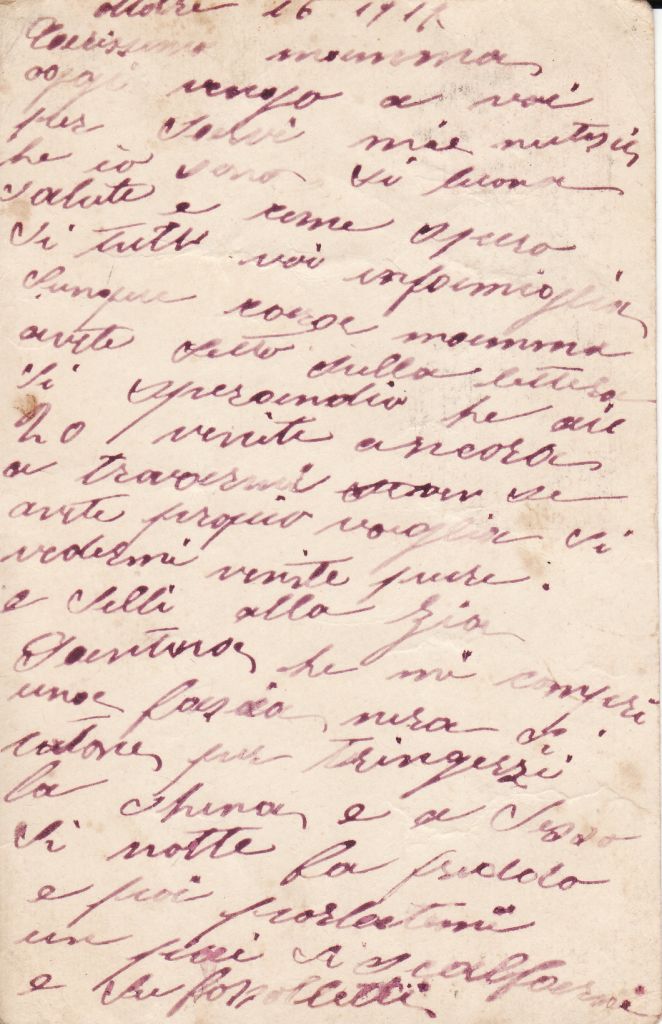 ottobre 16 1917
Carissima mamma
oggi vengo a voi
per darvi mie nutizie
he io sono di buona
salute e come spero
di tutti voi infamiglia
dunque cara mamma
avete detto dulla lettera
di sperandio he
venite ancora
a travarmi se
avete propio voglia di
vedermi venite pure.
e dilli alla Zia
Santina he mi conperi
una fascia nera di
cotone per tringerzi
la shina e a
di notte fa freddo
e poi portatemi
un pai di scalfarni
e du fossoletti